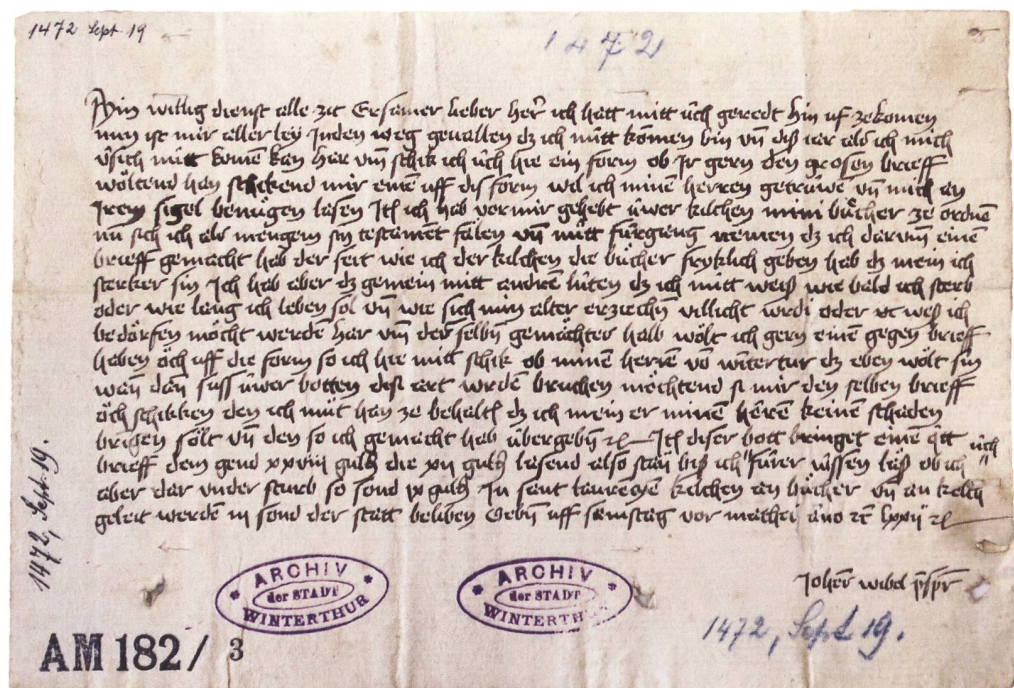 1472 Sept. 19
1472
Min willig dienst alle zit Ersamer lieber her ich hatt mitt üch geredt hin uf ze komen
nun ist mir aller ley Inden weg gevallen dz ich nütt komen bin vn diß iar ald ich mich
v̈sich nütt komen kan har vm schik ich üch hie ein form ob Ir gern den grosen brieff
wöltend han schikend mir einen uff dis form wil ich minen herren getrüwe vn mich an
Irem sigel benügen lasen It ich hab vor mir gehebt üwer kilchen mini bücher ze ordnen
nu sich ich als mengem sin testament fälen vn nütt fürgang nemen dz ich darum einen
brieff gemacht hab der seit wie ich der kilchen die bücher fryklich geben hab dz mein ich
sterker sin Ich hab aber dz gemein mitt andren lüten dz ich nütt weiß wie bald ich sterb
oder wie lang ich leben sol vn wie sich min alter erziechn villicht wrdi oder vc weß ich
bedörfen möcht werde har vm der selbn gemächtes halb wölt ich gern einen gegen brieff
haben öch uff die form so ich hie mitt schik ob minen herren vo wintertur dz eben wölt sin
wan dan suss üwer botten disi art wrde bruchen möchtend si mir den selben brieff
öch schikken den ich müt han ze behalt dz ich mein er minen heren keinen schaden
bringen sölt vn den so ich gemacht hab übergebn rc It diser bott bringet einen qtt üch
brieff dem gend xxviii guld die xii guld lasend also stan biß ich üch fürer wissen laß ob ich
aber dar vnder sturb so sond ix guld In sant laurecyē kilchen an bücher vn an kelch
geleit werden iii sond der statt beliben Gebn uff samstag vor mathei ano rc lxxii rc
Johes wibel ppr
1472, Sept. 19.
ARCHIV
der STADT
WINTERTHUR
ARCHIV
der STADT
WINTERTH
1472, Sept 19.
AM 182/ 3